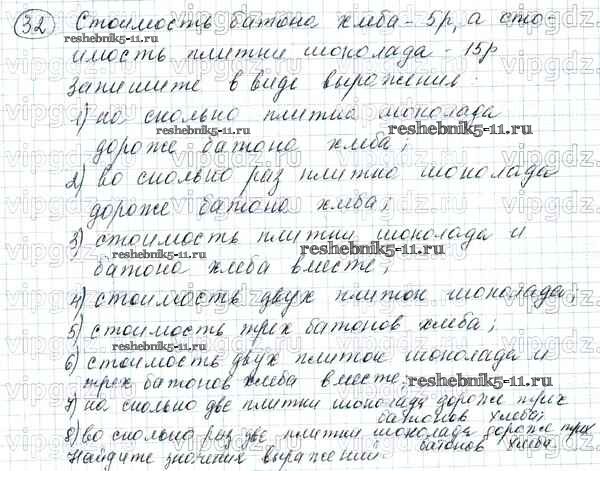 32 Стоимость батона хлеба - 5р, а сто-
имость плитки шоколада - 15р
Запишите в виде выражения:
1) на сколько плитка шоколада
reshebnik5-11.ru
дороже батона хлеба;
2) во сколько раз плитка шоколада
дороже батона хлеба;
3) стоимость плитки шоколада и
reshebnik5-11.ru
батона хлеба вместе;
4) стоимость двух плиток шоколада;
5) стоимость трех батонов хлеба;
6) стоимость двух плиток шоколада и
трех батонов хлеба вместе;
reshebnik5-11.ru
7) на сколько две плитки шоколада дороже трех
батонов хлеба;
8) во сколько раз две плитки шоколада дороже трех
батонов хлеба.
Найдите значения выражений.
reshebnik5-11.ru